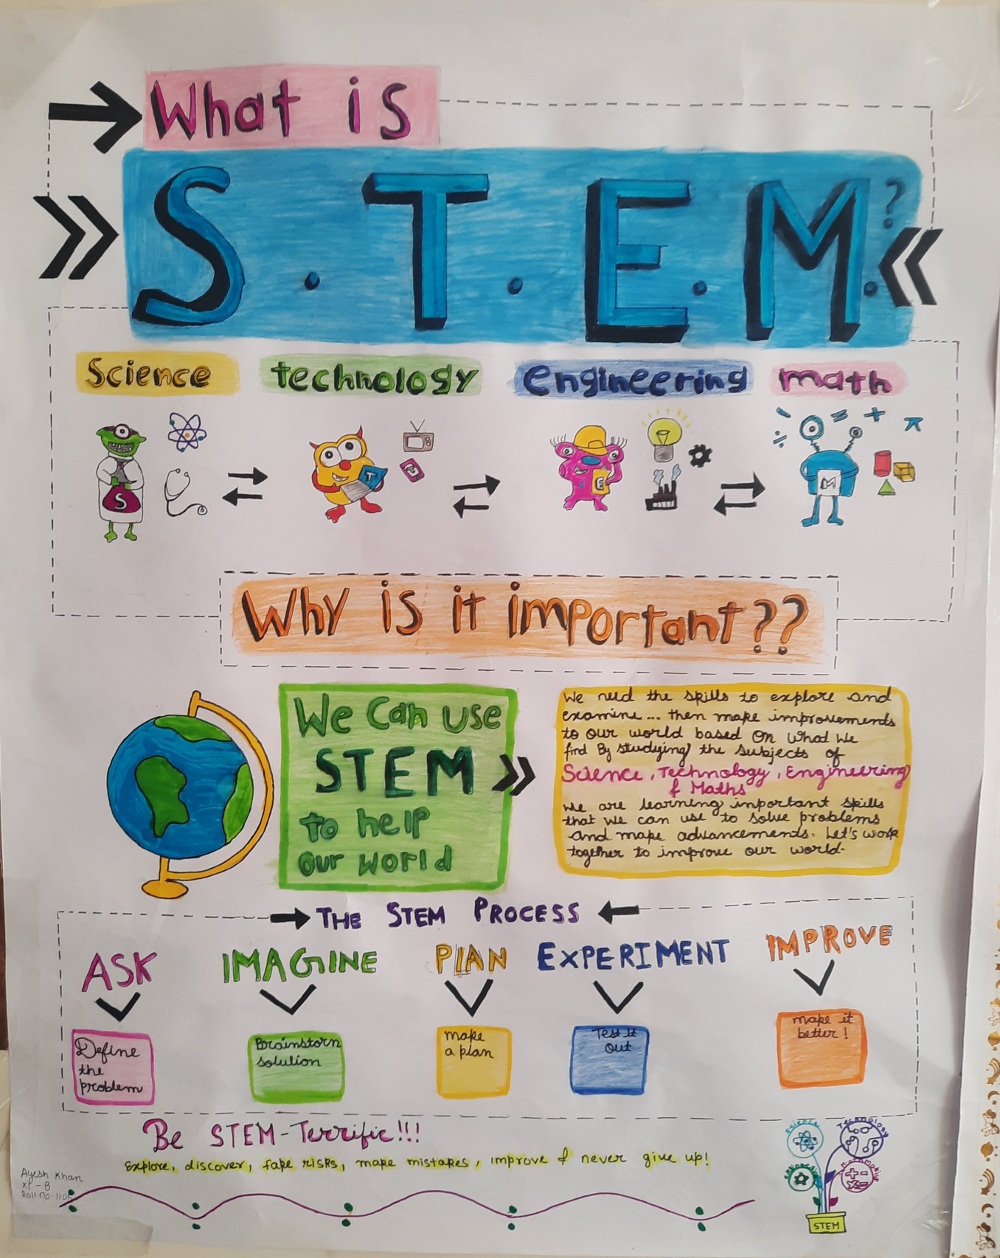 What is
S.T.E.M.?
Science technology engineering math
S T E M
Why is it important??
We Can use
STEM
to help
our world
We need the skills to explore and
examine... then make improvements
to our world based On What We
find By studying the subjects of
Science, Technology, Engineering
& Maths
We are learning important skills
that we can use to solve problems
and make advancements. Let's work
together to improve our world.
THE STEM PROCESS
ASK IMAGINE PLAN EXPERIMENT IMPROVE
Define
the
problem
Brainstorn
solution
make
a plan
Test it
out
make it
better!
Be STEM-Terrific!!!
Explore, discover, take risks, make mistakes, improve & never give up!
Science
Technology
STEM
Ayesh Khan
XI - B
Roll no.